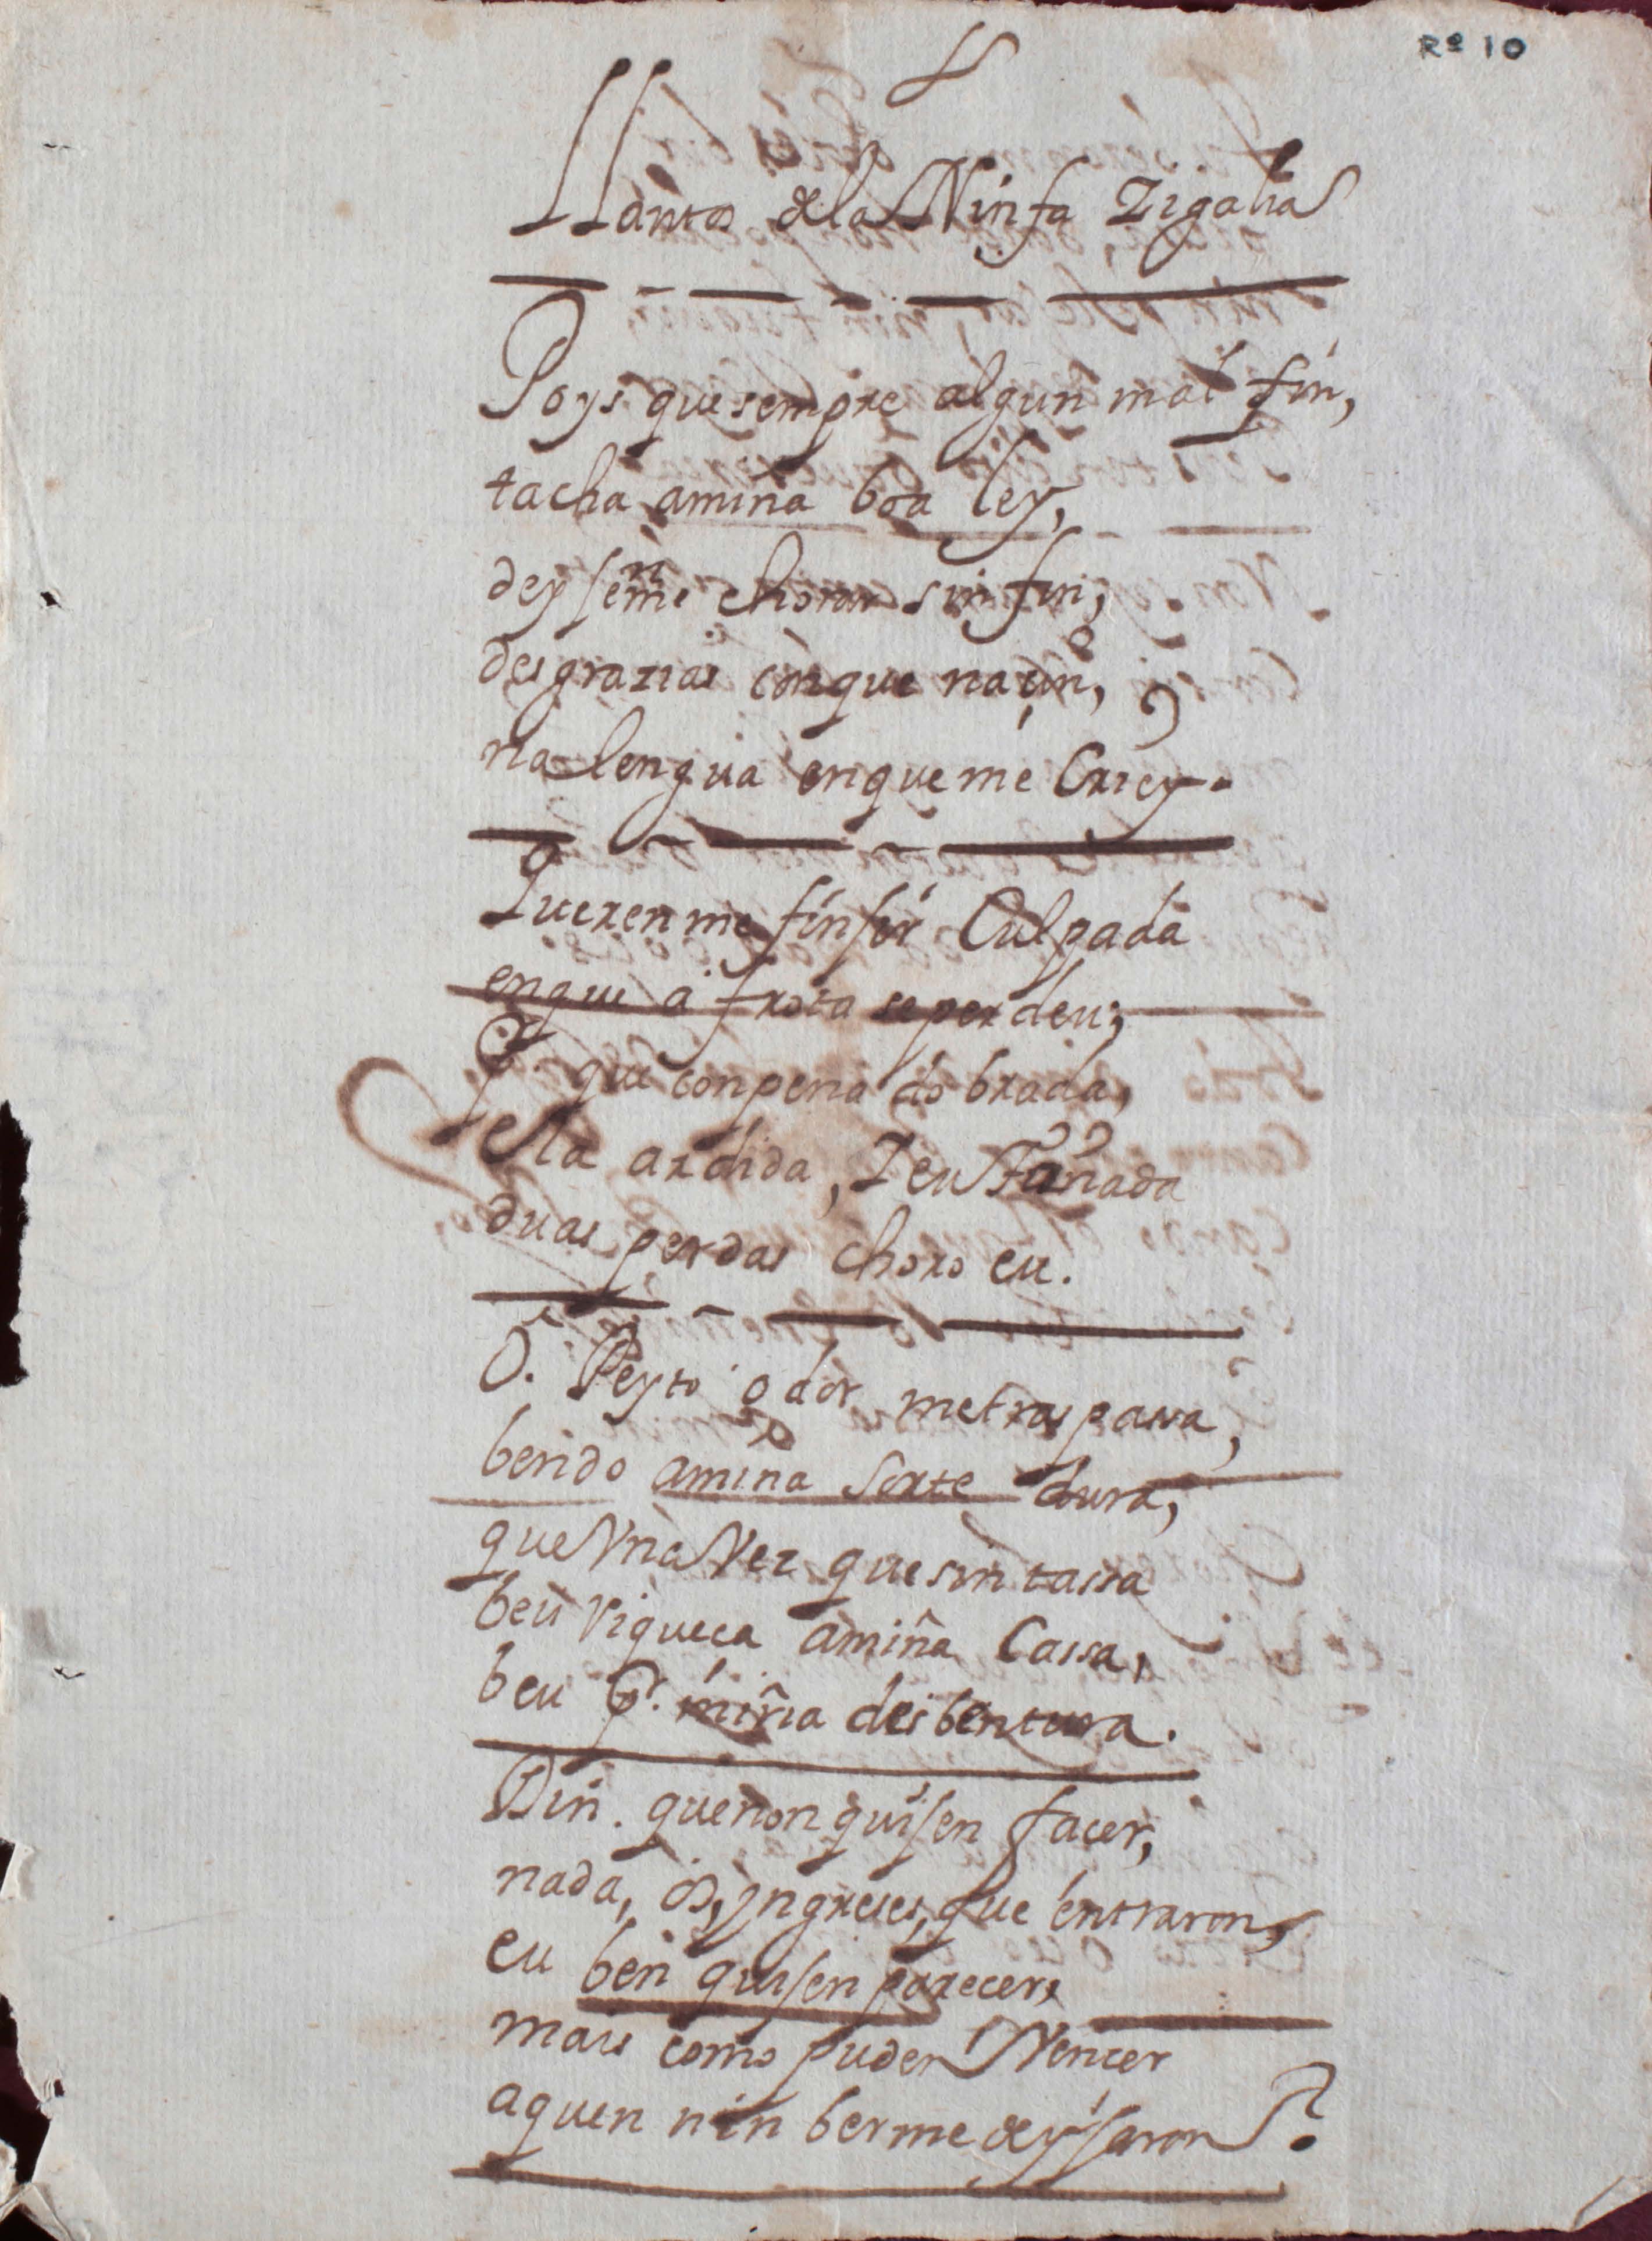 Rº 10
Llantos de la Ninfa Zigalia
Poys que sempre algun mal fin,
tacha amiña boa ley,
deysenme chorar sin fin,
desgrazias conque naçin,
na lengua enque me Criey.
Querenme finsir Culpada
enque a frota se perdeu;
P. que con pena dobrada,
ela ardida, Y eu Tañada
duas perdas choro eu.
O. Peyto o dor metraspassa,
bendo amiña Sorte dura,
que Vna Vez que sin tassa
beu riqueça amiña Cassa,
beu pr. miña desbentura.
Din. que non quisen facer,
nada, ôs, yngreses, que entraron,
eu ben quisen parecer,
mais como puden Vencer
aquen nin berme deysaron?